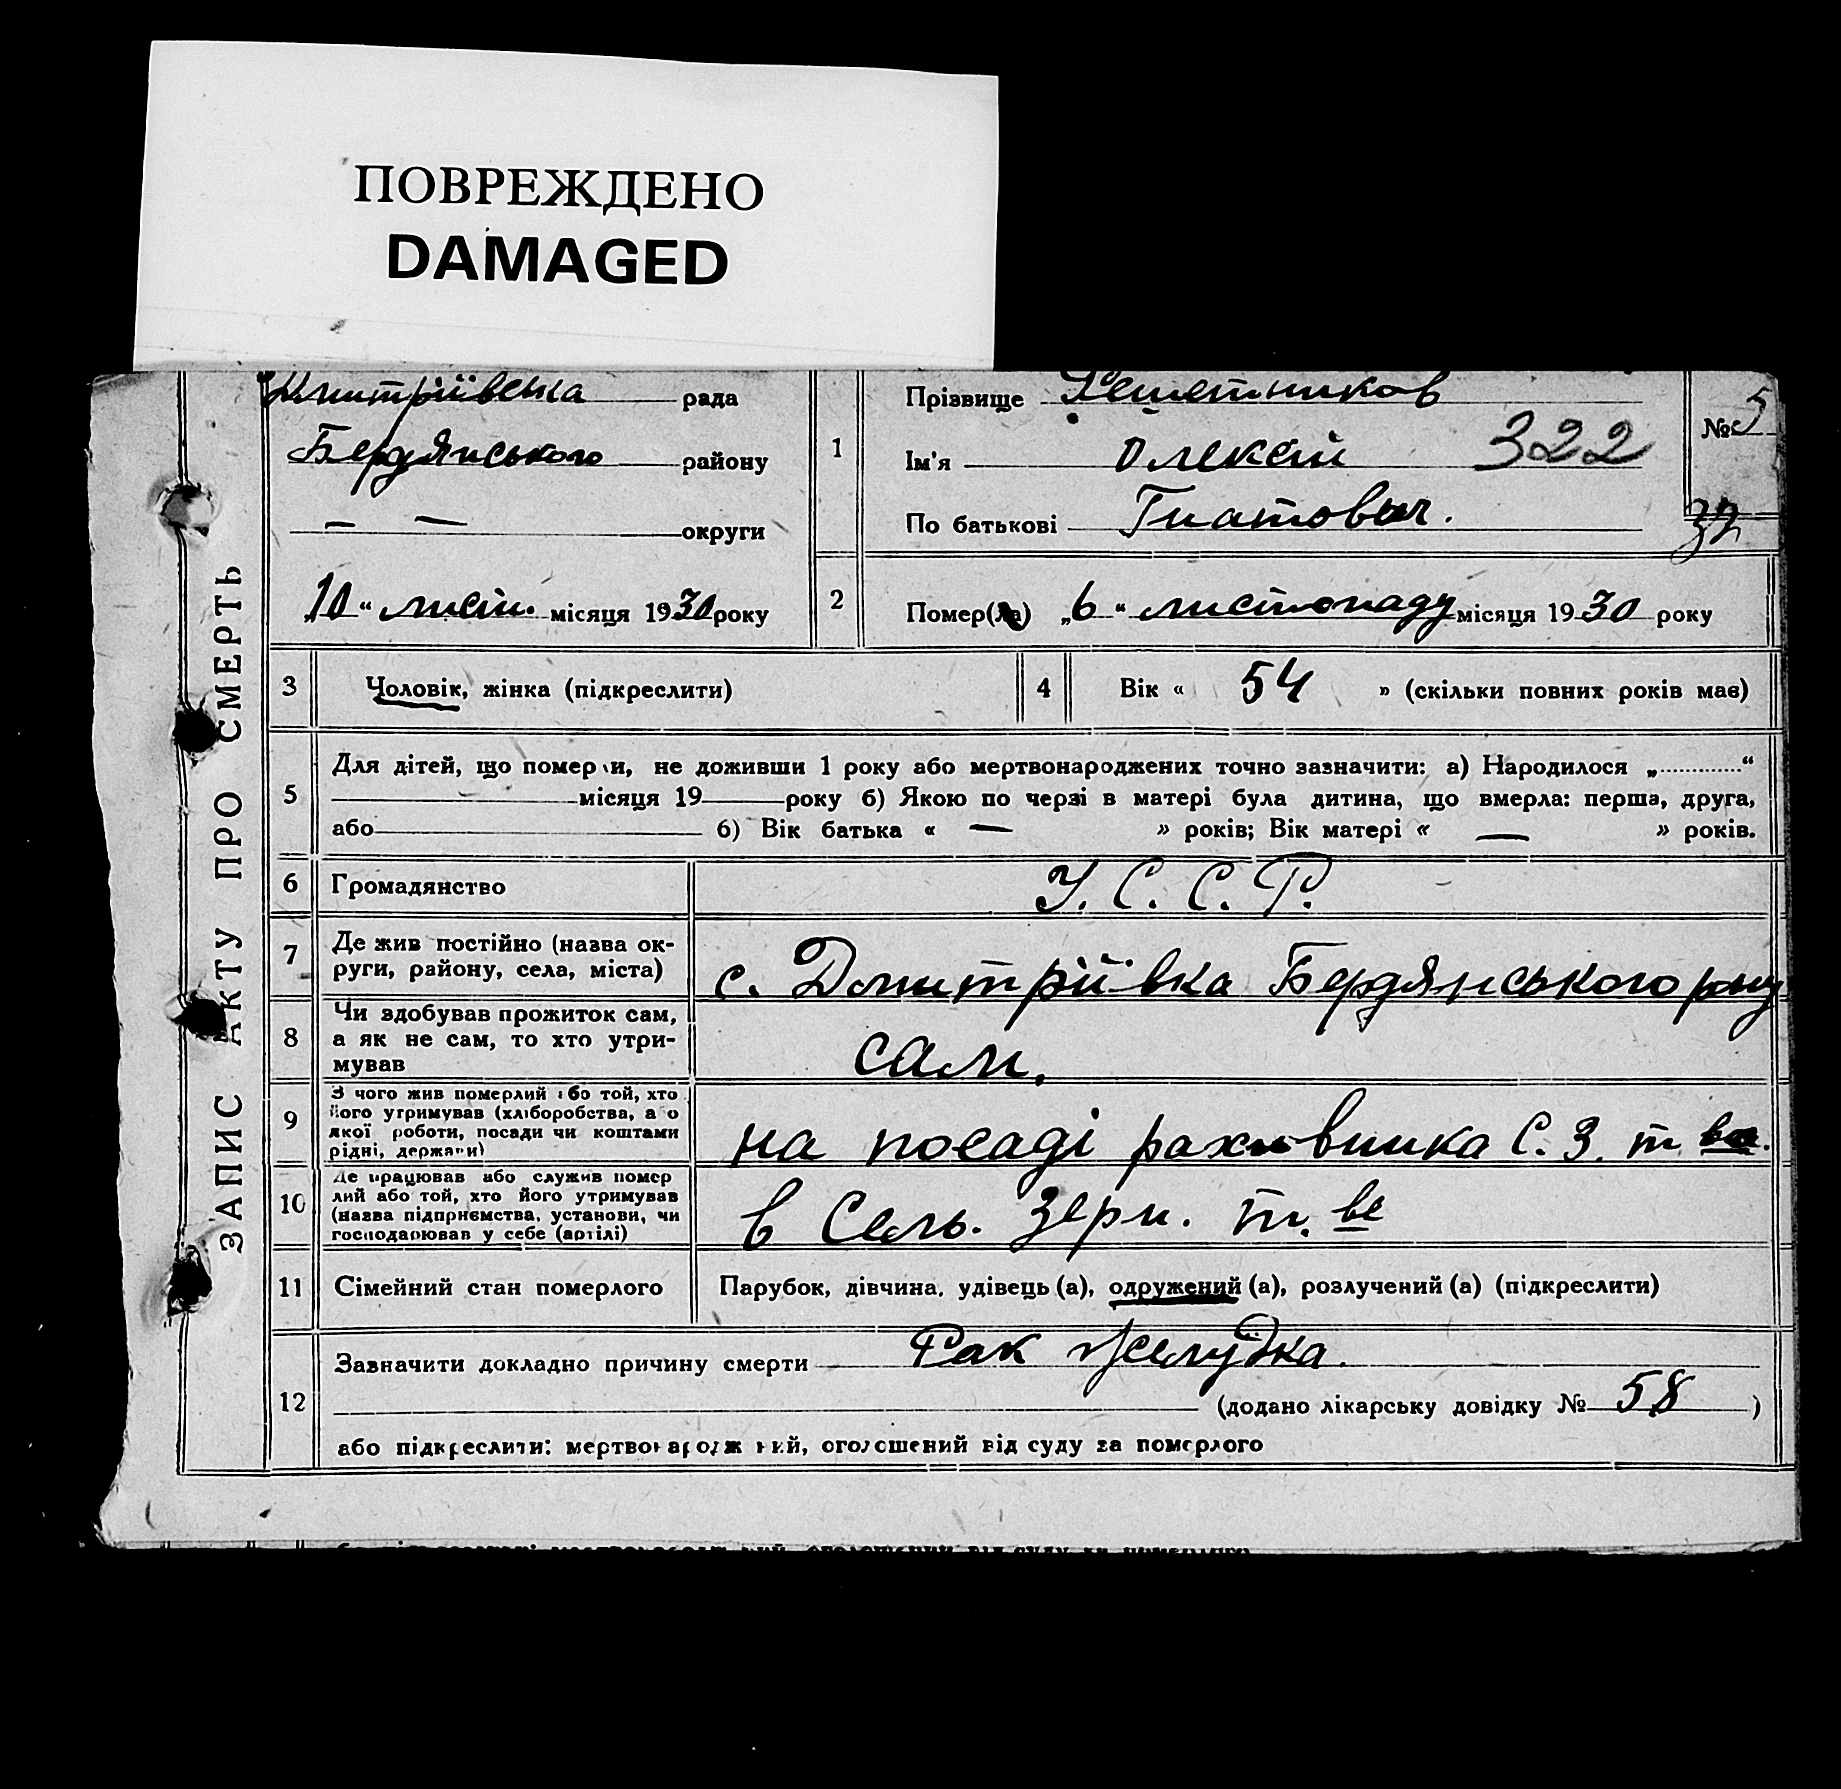 ПОВРЕЖДЕНО
DAMAGED
ЗАПИС АКТУ ПРО СМЕРТЬ
Дмитріївська рада
Бердянського району
— — округи
„10“ лист. місяця 1930 року
1
Прізвище Решетников
Ім'я Олексій 322
По батькові Гнатович.
№ 5
32
2
Помер(ла) „6“ листопаду місяця 1930 року
3 Чоловік, жінка (підкреслити)
4 Вік « 54 » (скільки повних років має)
5
Для дітей, що померли, не доживши 1 року або мертвонароджених точно зазначити: а) Народилося „............“
місяця 19 року б) Якою по черзі в матері була дитина, що вмерла: перша, друга,
або б) Вік батька « — » років; Вік матері « — » років.
6 Громадянство У. С. С. Р.
7 Де жив постійно (назва ок-
руги, району, села, міста)
с. Дмитріївка Бердянського р-ну
8 Чи здобував прожиток сам,
а як не сам, то хто утри-
мував
сам.
9 З чого жив померлий або той, хто
його утримував (хліборобства, а о
якої роботи, посади чи коштами
рідні, держави)
на посаді рахівника С. З. т. ва.
10 Де працював або служив помер
лий або той, хто його утримував
(назва підприємства, установи, чи
господарював у себе (артілі)
в Сель. Зерн. т. ве
11 Сімейний стан померлого Парубок, дівчина, удівець (а), одружений (а), розлучений (а) (підкреслити)
12
Зазначити докладно причину смерти Рак желудка.
(додано лікарську довідку № 58 )
або підкреслити: мертвонароджений, оголошений від суду за померлого